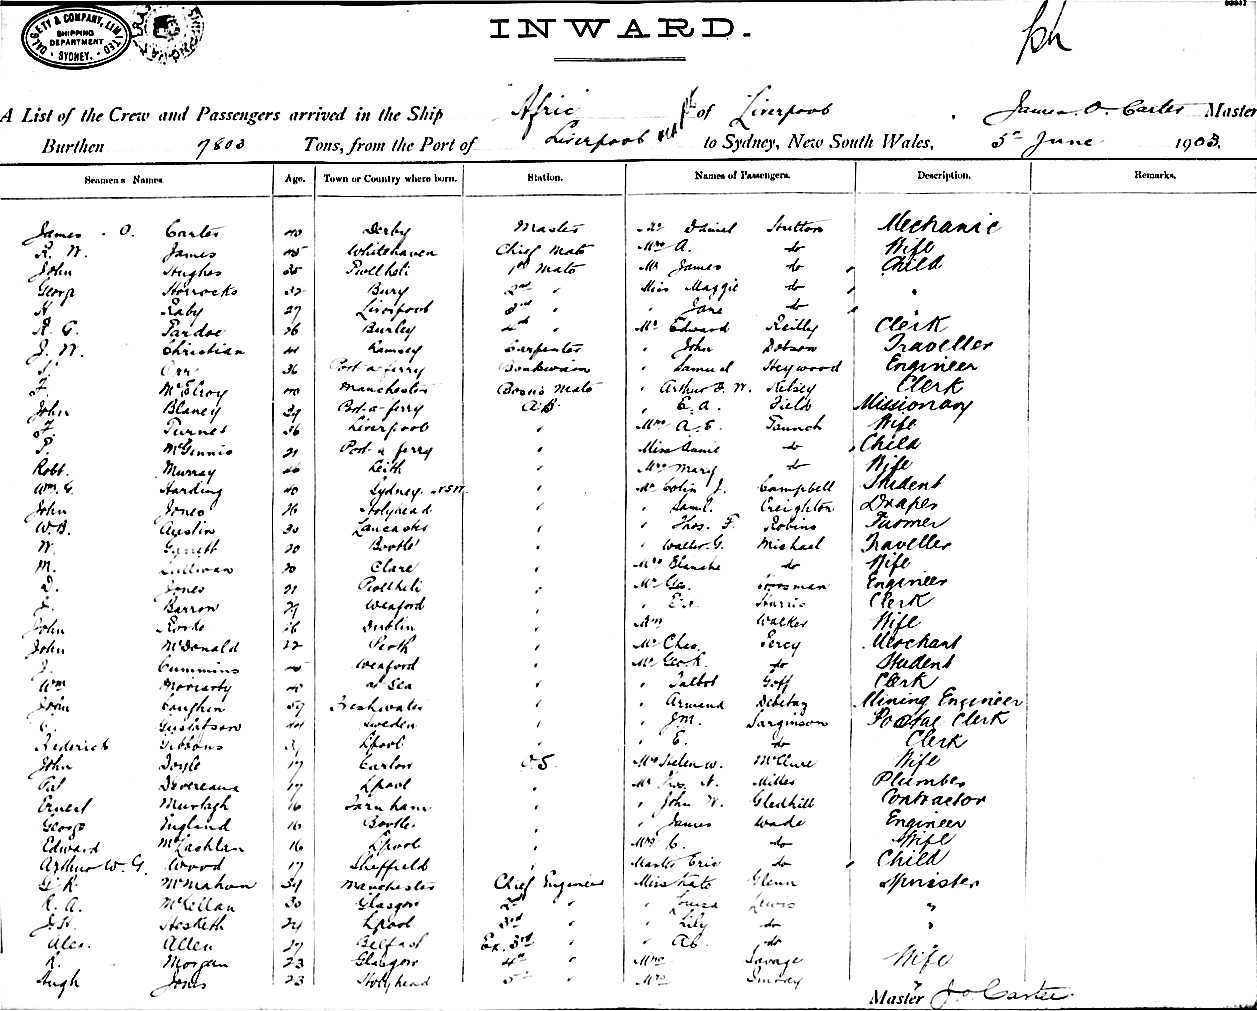 DALGETY & COMPANY, LIMITED
SHIPPING DEPARTMENT
SYDNEY.
INWARD.
A List of the Crew and Passengers arrived in the Ship Afric of Liverpool James O. Carter Master
Burthen 7803 Tons, from the Port of Liverpool to Sydney, New South Wales, 5th June 1903.
Seamen's Names Age. Town or Country where born. Station. Names of Passengers. Description. Remarks.
James O. Carter 40 Derby Master Mr Daniel Hutton Mechanic
R. W. James 45 Whitehaven Chief Mate Mrs A. do Wife
John Hughes 35 Pwllheli 1st Mate Mr James do Child
George Horrocks 32 Bury 2nd " Miss Maggie do "
H Raby 27 Liverpool 3rd " " Jane do "
R. G. Pardoe 26 Burley 4th " Mr Edward Reilly Clerk
J. W. Christian 41 Ramsey Carpenter " John Dobson Traveller
Orr 36 Port-a-ferry Boatswain " Samuel Heywood Engineer
McElroy 40 Manchester Bosn's Mate " Arthur W. Kelsey Clerk
John Blaney 39 Port-a-ferry A.B. " E. A. Field Missionary
Turner 36 Liverpool " Mrs A. E. Taunch Wife
P. McGinnis 21 Port a ferry " Miss Annie do Child
Robt. Murray 26 Leith " Mrs Mary do Wife
Wm. G. Harding 40 Sydney. NSW. " Mr Colin J. Campbell Student
John Jones 26 Holyhead " " Saml. Creighton Draper
W. B. Austin 30 Lancaster " " Thos. F. Robins Farmer
W. Garrett 20 Bootle " " Walter G. Michael Traveller
M. Sullivan 20 Clare " Mrs Blanche do Wife
D. Jones 21 Pwllheli " Mr Geo. Engineer
J. Barron 29 Wexford " " Harris Clerk
John Rorke 26 Dublin " Walker Wife
John McDonald 22 Perth " Mr Chas. Percy Merchant
J. Cummins 45 Wexford " Mr Geo. R. do Student
Wm Moriarty 40 at Sea " " Talbot Goff Clerk
John Vaughan 39 Freshwater " " Armand Mining Engineer
C. Gustafson 44 Sweden " " J.M. Sarginson Postal Clerk
Frederick Gibbons L'pool " " E. do Clerk
John Doyle 19 Carlow O.S. Mrs Helen W. McClure Wife
Pat Devereaux 17 L'pool " Mr Thos. N. Miller Plumber
Ernest Murtagh 16 Farnham " " John W. Gledhill Contractor
George England 16 Bootle " " James Wade Engineer
Edward McLachlan 16 L'pool " Mrs C. do Wife
Arthur W. G. Wood 17 Sheffield " Master Eric do Child
G. R. McMahon 34 Manchester Chief Engineer Miss Kate Glenn Spinster
R. A. McLellan 30 Glasgow 2nd " " Louisa Lewis "
J. H. Hesketh 24 L'pool 3rd " " Lily do "
Alex. Allen 27 Belfast Ex. 3rd " " Ab. do
R. Morgan 23 Glasgow 4th " Mrs Savage Wife
Hugh Jones 23 Holyhead 5th " Mrs "
Master J. O. Carter